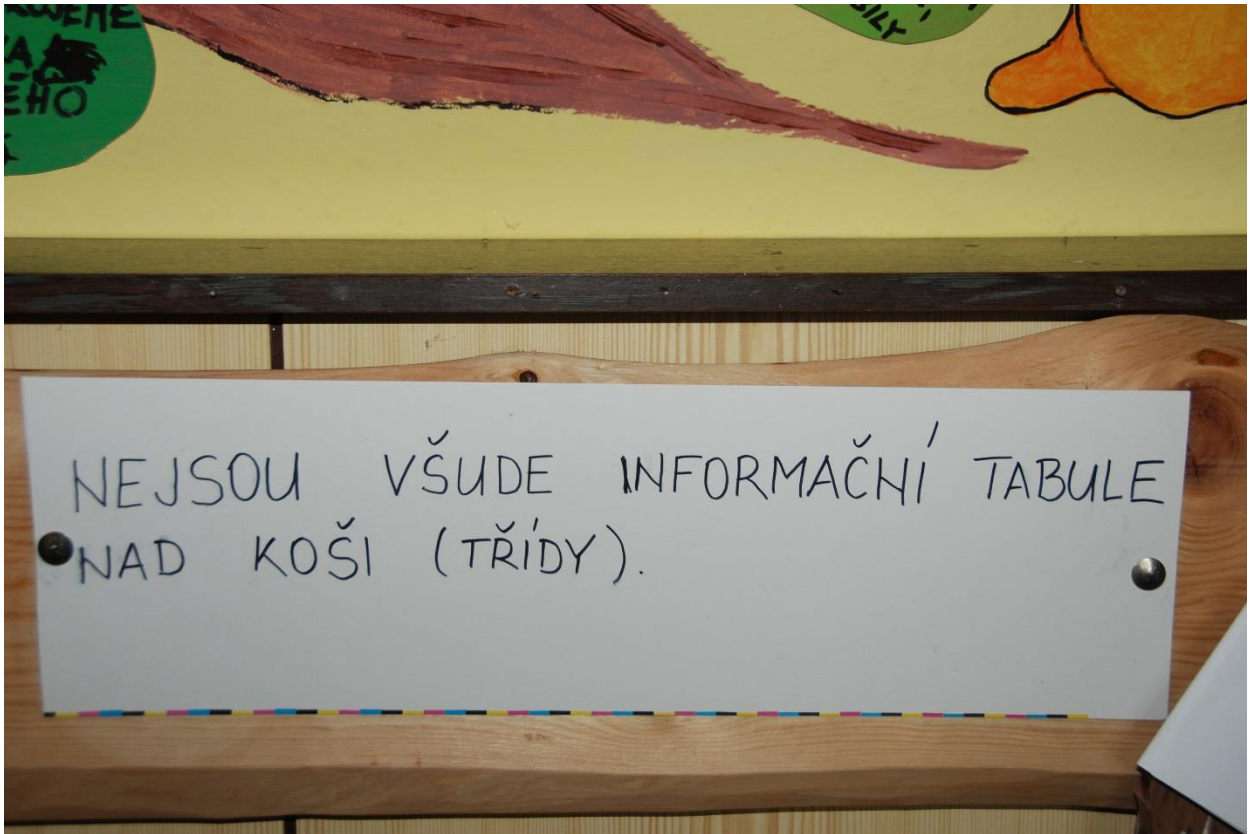 NEJSOU VŠUDE INFORMAČNÍ TABULE
NAD KOŠI (TŘÍDY).